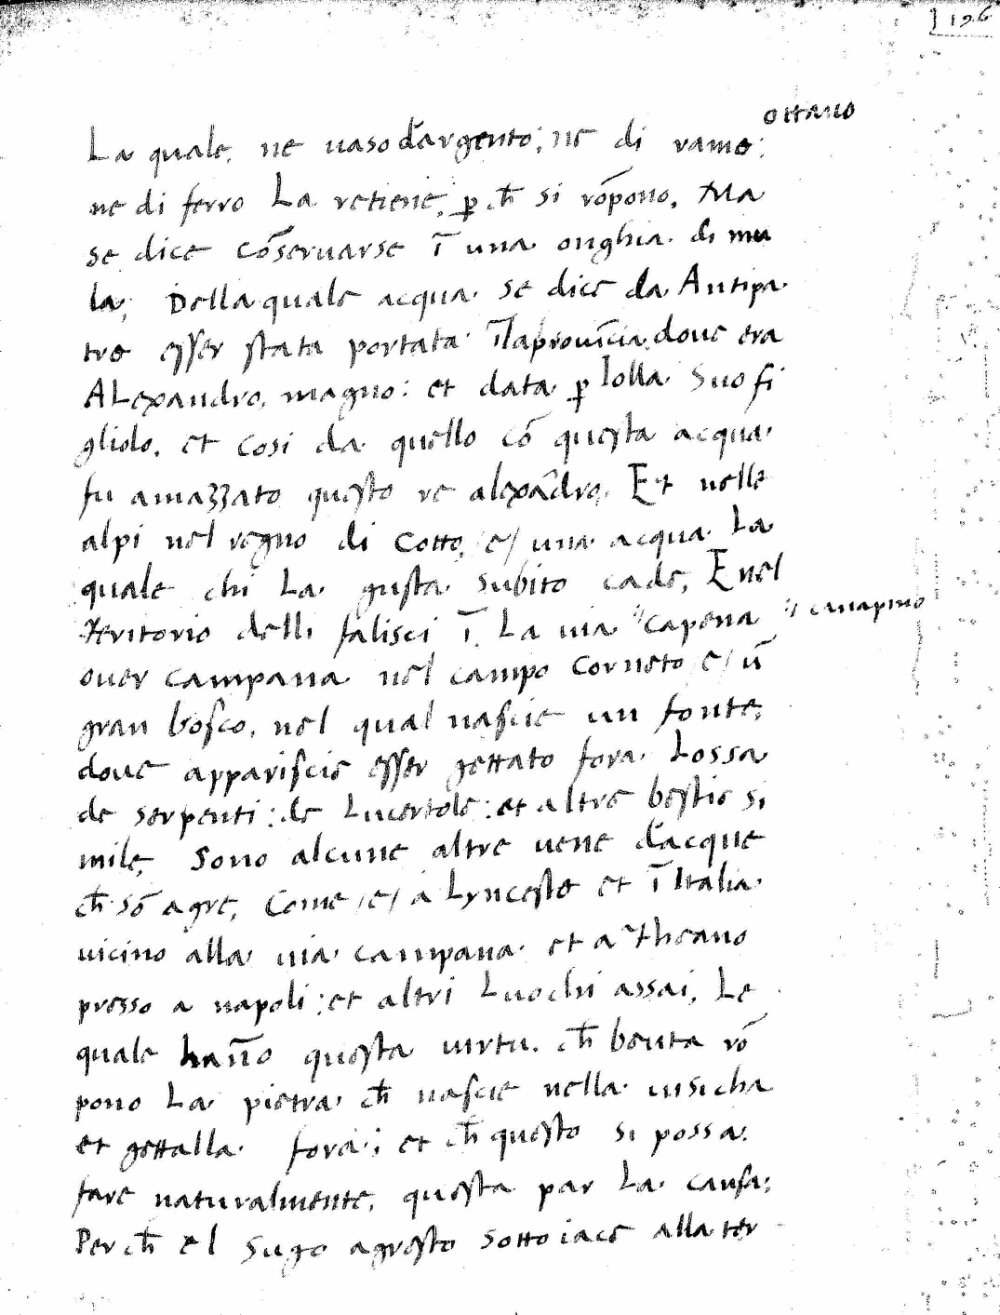 196
ottano
La quale, ne uaso d'argento; ne di rame:
ne di ferro La retiene, ꝑ ch̄ si rōpono. Ma
se dice cōseruarse ī una onghia di mu
la; Della quale acqua se dice da Antipa
tro esser stata portata īla prouīcia doue era
ALexandro, magno: et data ꝑ Iolla suo fi
gliolo. et cosi da quello cō questa acqua
fu amazzato questo re alexādro. Et nelle
alpi nel regno di Cotto, /e/ una acqua La
quale chi La gusta subito cade, E nel
teritorio delli falisci ī La uia "capena " canapino
ouer campana nel campo Corneto /e/ ū
gran bosco, nel qual nascie un fonte,
doue appariscie esser gettato fora Lossa
de serpenti: de Lucertole: et altre bestie si
mile, Sono alcune altre uene d'acque
ch̄ sō agre, Come /e/ a Lynceste et ī Italia
uicino alla uia campana et a Theano
presso a napoli: et altri Luochi assai, Le
quale han̄o questa uirtu. ch̄ beuta rō
pono La pietra ch̄ nascie nella uisicha
et gettalla fora; et ch̄ questo si possa
fare naturalmente, questa par La causa;
Perch̄ el sugo agresto sotto iace alla ter